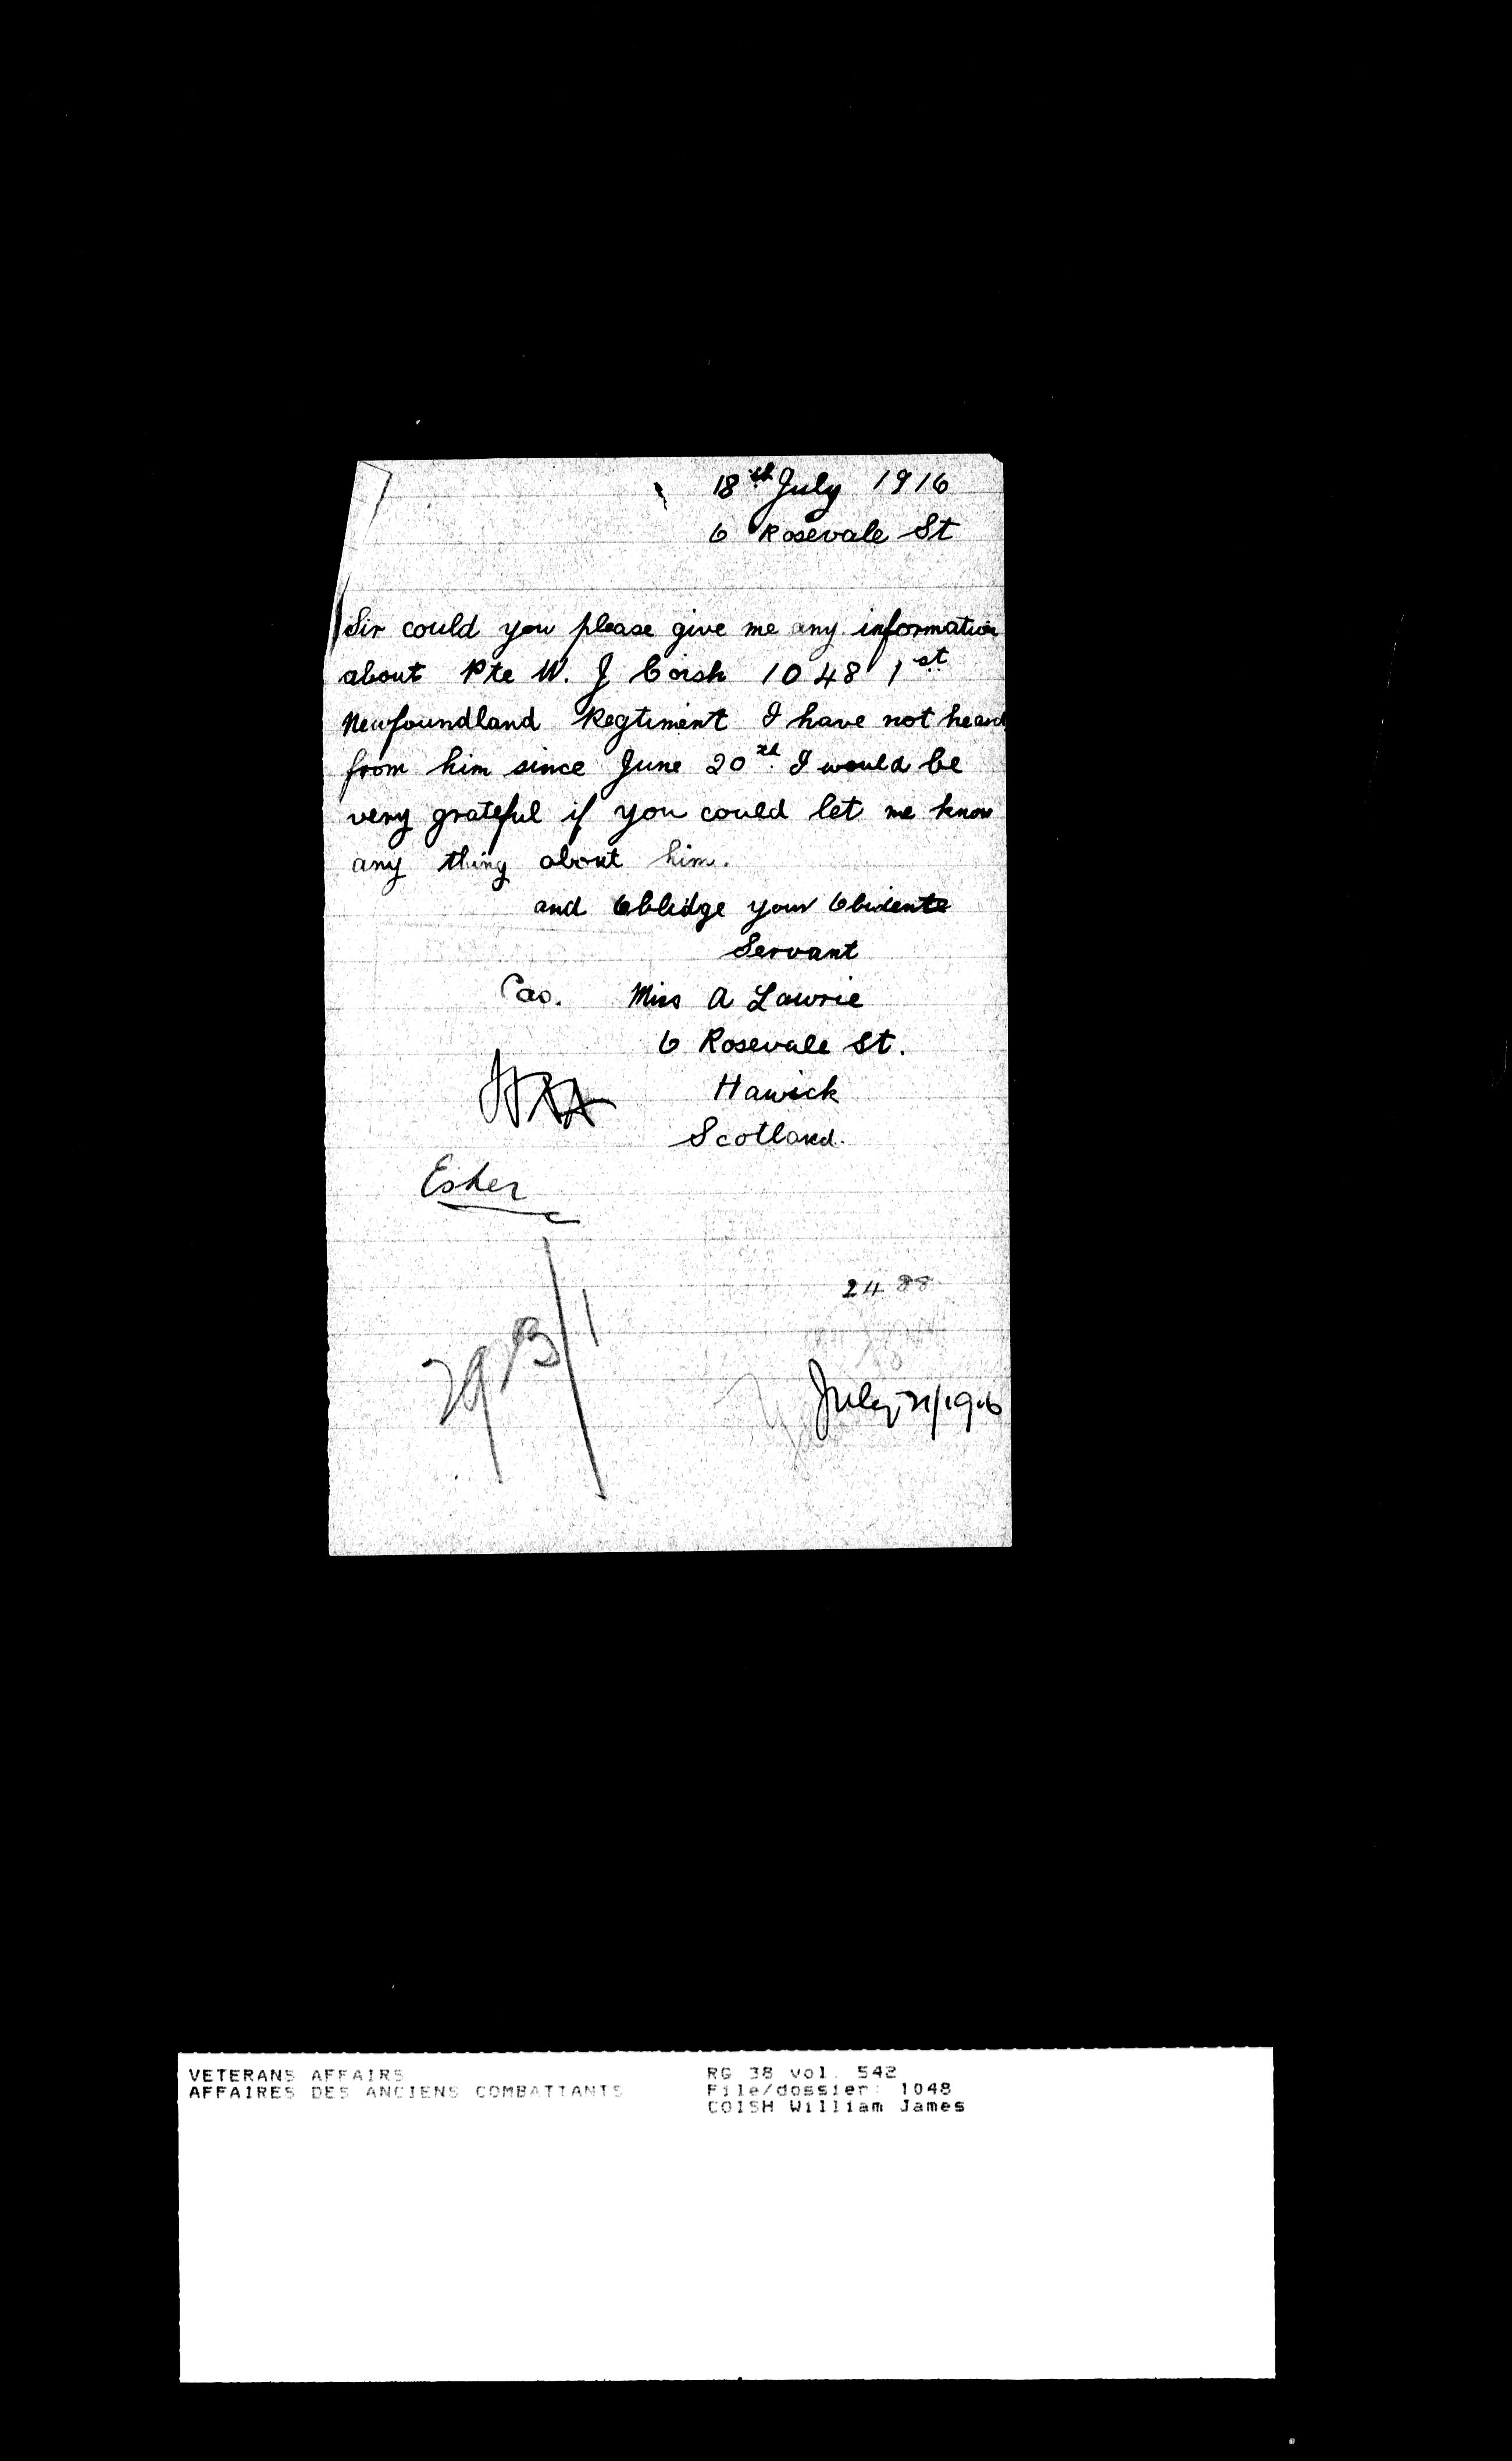 18th July 1916
6 Rosevale St
Sir could you please give me any information
about Pte W. J Coish 1048 1st
Newfoundland Regtiment I have not heard
from him since June 20th. I would be
very grateful if you could let me know
any thing about him.
and Oblidge your Obident
Servant
Cas. Miss A Lawrie
6 Rosevale St.
Hawick
Scotland.
Esher
2488
July 21/1916
VETERANS AFFAIRS
AFFAIRES DES ANCIENS COMBATTANTS
RG 38 vol. 542
File/dossier: 1048
COISH William James